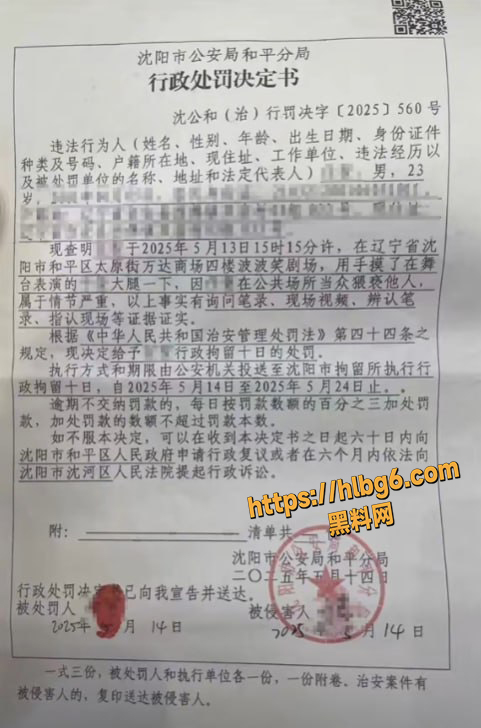 沈阳市公安局和平分局
行政处罚决定书
沈公和（治）行罚决字〔2025〕560 号
违法行为人（姓名、性别、年龄、出生日期、身份证件
种类及号码、户籍所在地、现住址、工作单位、违法经历以
及被处罚单位的名称、地址和法定代表人） 男，23
岁，
现查明 于2025年5月13日15时15分许，在辽宁省沈
阳市和平区太原街万达商场四楼波波笑剧场，用手摸了在舞
台表演的 大腿一下，因 在公共场所当众猥亵他人，
属于情节严重，以上事实有询问笔录、现场视频、辨认笔
录、指认现场等证据证实。
根据《中华人民共和国治安管理处罚法》第四十四条之
规定，现决定给予 行政拘留十日的处罚。
执行方式和期限由公安机关投送至沈阳市拘留所执行行
政拘留十日，自2025年5月14日至2025年5月24日止。
逾期不交纳罚款的，每日按罚款数额的百分之三加处罚
款，加处罚款的数额不超过罚款本数。
如不服本决定，可以在收到本决定书之日起六十日内向
沈阳市和平区人民政府申请行政复议或者在六个月内依法向
沈阳市沈河区人民法院提起行政诉讼。
https://hlbg6.com
黑料网
附： 清单共
沈阳市公安局和平分局
二〇二五年五月十四日
行政处罚决定 已向我宣告并送达。
被处罚人 被侵害人
2025年5月14日 2025年5月14日
一式三份，被处罚人和执行单位各一份，一份附卷。治安案件有
被侵害人的，复印送达被侵害人。